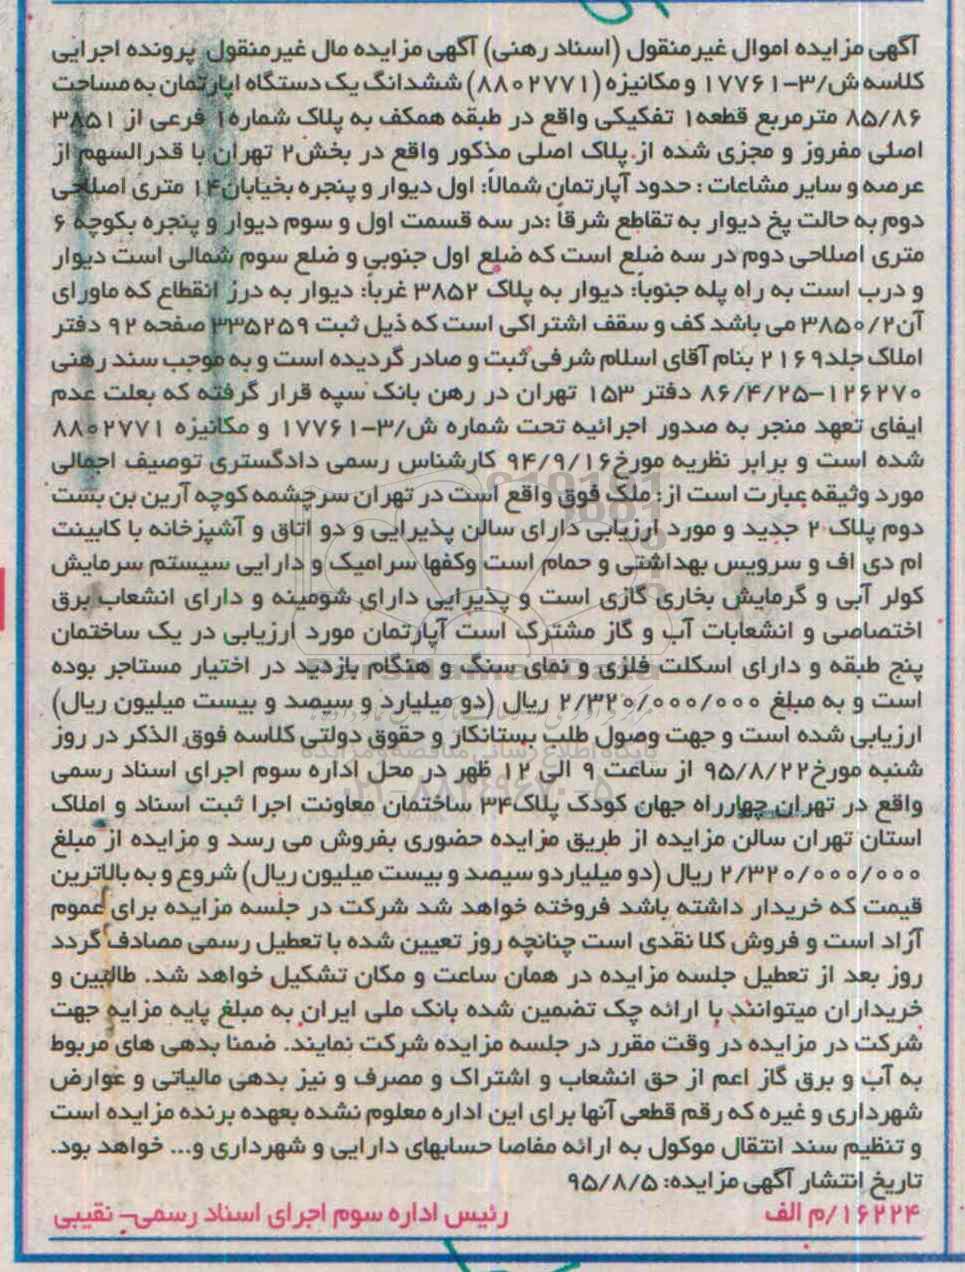 آگهی مزایده اموال غیرمنقول (اسناد رهنی) آگهی مزایده مال غیرمنقول پرونده اجرایی
کلاسه ش/۳-۱۷۷۶۱ و مکانیزه (۸۸۰۲۷۷۱) ششدانگ یک دستگاه اپارتمان به مساحت
۸۵/۸۶ مترمربع قطعه۱ تفکیکی واقع در طبقه همکف به پلاک شماره۱ فرعی از ۳۸۵۱
اصلی مفروز و مجزی شده از پلاک اصلی مذکور واقع در بخش۲ تهران با قدرالسهم از
عرصه و سایر مشاعات : حدود آپارتمان شمالاً: اول دیوار و پنجره بخیابان۱۴ متری اصلاحی
دوم به حالت پخ دیوار به تقاطع شرقاً :در سه قسمت اول و سوم دیوار و پنجره بکوچه ۶
متری اصلاحی دوم در سه ضلع است که ضلع اول جنوبی و ضلع سوم شمالی است دیوار
و درب است به راه پله جنوباً: دیوار به پلاک ۳۸۵۲ غرباً: دیوار به درز انقطاع که ماورای
آن۳۸۵۰/۲ می باشد کف و سقف اشتراکی است که ذیل ثبت ۳۳۵۲۵۹ صفحه ۹۲ دفتر
املاک جلد۲۱۶۹ بنام آقای اسلام شرفی ثبت و صادر گردیده است و به موجب سند رهنی
۱۲۶۲۷۰-۸۶/۴/۲۵ دفتر ۱۵۳ تهران در رهن بانک سپه قرار گرفته که بعلت عدم
ایفای تعهد منجر به صدور اجرائیه تحت شماره ش/۳-۱۷۷۶۱ و مکانیزه ۸۸۰۲۷۷۱
شده است و برابر نظریه مورخ۹۴/۹/۱۶ کارشناس رسمی دادگستری توصیف اجمالی
مورد وثیقه عبارت است از: ملک فوق واقع است در تهران سرچشمه کوچه آرین بن بست
دوم پلاک ۲ جدید و مورد ارزیابی دارای سالن پذیرایی و دو اتاق و آشپزخانه با کابینت
ام دی اف و سرویس بهداشتی و حمام است وکفها سرامیک و دارایی سیستم سرمایش
کولر آبی و گرمایش بخاری گازی است و پذیرایی دارای شومینه و دارای انشعاب برق
اختصاصی و انشعابات آب و گاز مشترک است آپارتمان مورد ارزیابی در یک ساختمان
پنج طبقه و دارای اسکلت فلزی و نمای سنگ و هنگام بازدید در اختیار مستاجر بوده
است و به مبلغ ۲/۳۲۰/۰۰۰/۰۰۰ ریال (دو میلیارد و سیصد و بیست میلیون ریال)
ارزیابی شده است و جهت وصول طلب بستانکار و حقوق دولتی کلاسه فوق الذکر در روز
شنبه مورخ۹۵/۸/۲۲ از ساعت ۹ الی ۱۲ ظهر در محل اداره سوم اجرای اسناد رسمی
واقع در تهران چهارراه جهان کودک پلاک۳۴ ساختمان معاونت اجرا ثبت اسناد و املاک
استان تهران سالن مزایده از طریق مزایده حضوری بفروش می رسد و مزایده از مبلغ
۲/۳۲۰/۰۰۰/۰۰۰ ریال (دو میلیاردو سیصد و بیست میلیون ریال) شروع و به بالاترین
قیمت که خریدار داشته باشد فروخته خواهد شد شرکت در جلسه مزایده برای عموم
آزاد است و فروش کلا نقدی است چنانچه روز تعیین شده با تعطیل رسمی مصادف گردد
روز بعد از تعطیل جلسه مزایده در همان ساعت و مکان تشکیل خواهد شد. طالبین و
خریداران میتوانند با ارائه چک تضمین شده بانک ملی ایران به مبلغ پایه مزایه جهت
شرکت در مزایده در وقت مقرر در جلسه مزایده شرکت نمایند. ضمنا بدهی های مربوط
به آب و برق گاز اعم از حق انشعاب و اشتراک و مصرف و نیز بدهی مالیاتی و عوارض
شهرداری و غیره که رقم قطعی آنها برای این اداره معلوم نشده بعهده برنده مزایده است
و تنظیم سند انتقال موکول به ارائه مفاصا حسابهای دارایی و شهرداری و... خواهد بود.
تاریخ انتشار آگهی مزایده: ۹۵/۸/۵
۱۶۲۲۴/م الف رئیس اداره سوم اجرای اسناد رسمی- نقیبی